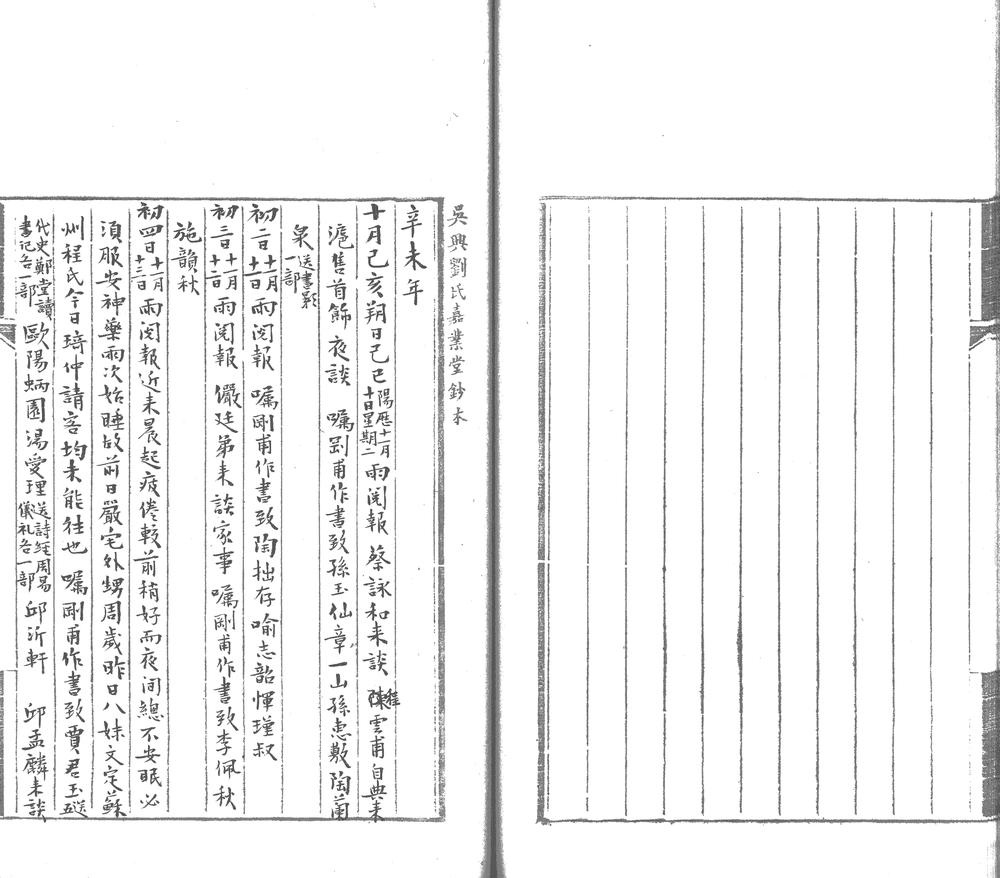 吳興劉氏嘉業堂鈔本
辛未年
十月己亥朔日己巳陽歷十一月十日星期二雨閱報 蔡詠和来談 程雲甫自典来
滬售首飾夜談 囑剛甫作書致孫玉仙章一山孫惠敷陶蘭
泉送書影一部
初二日十一月十一日雨閱報 囑剛甫作書致陶拙存喻志韶惲瑾叔
初三日十一月十二日雨閱報 儼廷弟来談家事 囑剛甫作書致李佩秋
施韻秋
初四日十一月十三日雨閱報近来晨起疲倦較前稍好而夜间總不安眠必
須服安神藥兩次始睡故前日嚴宅外甥周歲昨日八妹文定蘇
州程氏今日琦仲請客均未能往也 囑剛甫作書致賈君玉送五
代史鄭堂讀書記各一部 歐陽蜹園 湯愛理送詩經周易儀礼各一部 邱沂軒 邱孟麟来談